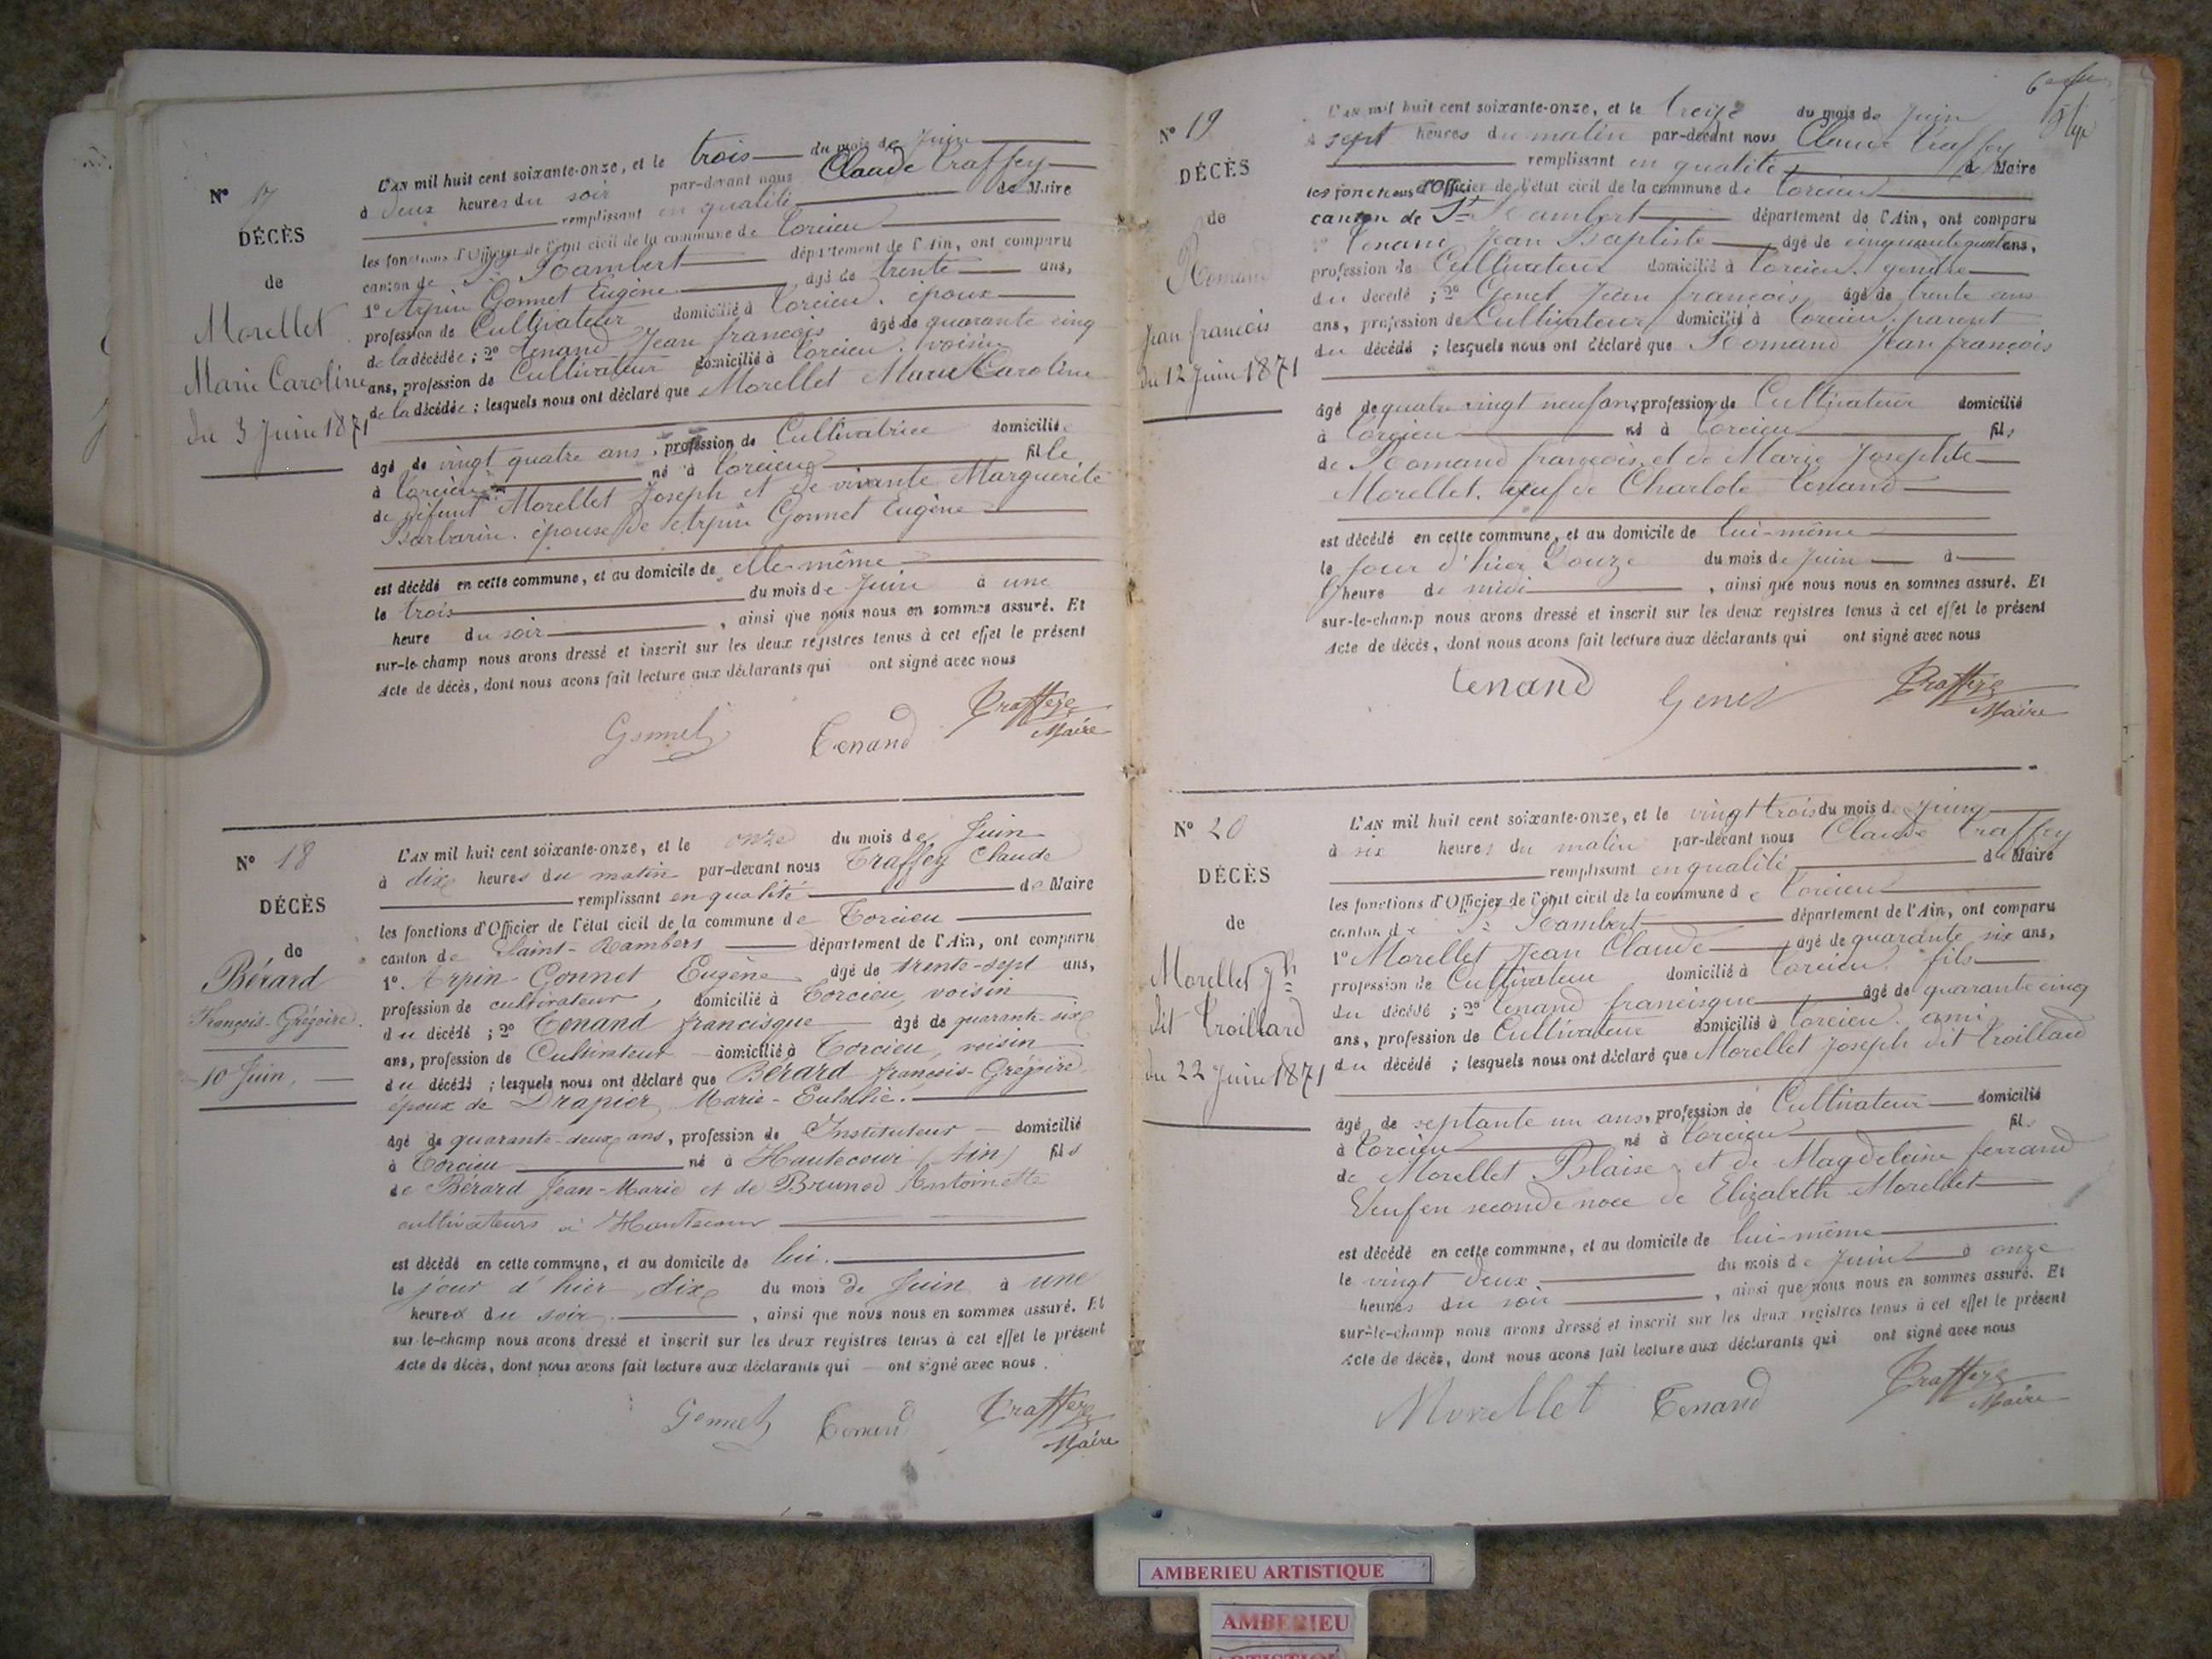 N° 17
DÉCÈS
de
Morellet
Marie Caroline
du 3 Juin 1871
L'AN mil huit cent soixante-onze, et le trois du mois de Juin
à deux heures du soir par-devant nous Claude Traffey
remplissant en qualité de Maire
les fonctions d'Officier de l'état civil de la commune de Torcieu
canton de St Rambert département de l'Ain, ont comparu
1° Arpin Gonnet Eugène âgé de trente ans,
profession de Cultivateur domicilié à Torcieu. époux
de la décédée ; 2° Tenand Jean françois âgé de quarante cinq
ans, profession de Cultivateur domicilié à Torcieu. voisin
de la décédée ; lesquels nous ont déclaré que Morellet Marie Caroline
âgé de vingt quatre ans, profession de Cultivatrice domicilié
à Torcieu né à Torcieu fille
de défunt Morellet Joseph et de vivante Marguerite
Barbarin. épouse de Arpin Gonnet Eugène
est décédé en cette commune, et au domicile de elle-même
le trois du mois de Juin à une
heure du soir , ainsi que nous nous en sommes assuré. Et
sur-le-champ nous avons dressé et inscrit sur les deux registres tenus à cet effet le présent
acte de décès, dont nous avons fait lecture aux déclarants qui ont signé avec nous
Gonnet Tenand Traffey
Maire
N° 18
DÉCÈS
de
Bérard
François-Grégoire.
10 Juin,
L'AN mil huit cent soixante-onze, et le onze du mois de Juin
à dix heures du matin par-devant nous Traffey Claude
remplissant en qualité de Maire
les fonctions d'Officier de l'état civil de la commune de Torcieu
canton de Saint-Rambert département de l'Ain, ont comparu
1° Arpin-Gonnet Eugène âgé de trente-sept ans,
profession de cultivateur, domicilié à Torcieu, voisin
du décédé ; 2° Tenand francisque âgé de quarante-six
ans, profession de Cultivateur domicilié à Torcieu, voisin
du décédé ; lesquels nous ont déclaré que Bérard françois-Grégoire,
époux de Drapier, Marie-Eulalie.
âgé de quarante-deux ans, profession de Instituteur domicilié
à Torcieu né à Hautecour (Ain) fils
de Bérard Jean-Marie et de Brunod Antoinette
cultivateurs à Hautecour
est décédé en cette commune, et au domicile de lui.
le jour d'hier, dix du mois de Juin à une
heures du soir , ainsi que nous nous en sommes assuré. Et
sur-le-champ nous avons dressé et inscrit sur les deux registres tenus à cet effet le présent
acte de décès, dont nous avons fait lecture aux déclarants qui — ont signé avec nous.
Gonnet Tenand Traffey
Maire
N° 19
DÉCÈS
de
Romand
Jean françois
du 12 Juin 1871
L'AN mil huit cent soixante-onze, et le treize du mois de Juin
à sept heures du matin par-devant nous Claude Traffey
remplissant en qualité de Maire
les fonctions d'Officier de l'état civil de la commune de Torcieu
canton de St Rambert département de l'Ain, ont comparu
1° Tenand Jean Baptiste âgé de cinquante quatre ans,
profession de Cultivateur domicilié à Torcieu. gendre
du décédé ; 2° Genet Jean françois âgé de trente ans
ans, profession de Cultivateur domicilié à Torcieu. parent
du décédé ; lesquels nous ont déclaré que Romand Jean françois
âgé de quatre vingt neuf ans, profession de Cultivateur domicilié
à Torcieu né à Torcieu fils
de Romand françois et de Marie Josephte
Morellet. veuf de Charlote Tenand
est décédé en cette commune, et au domicile de lui-même
le jour d'hier Douze du mois de Juin à
l'heure de midi , ainsi que nous nous en sommes assuré. Et
sur-le-champ nous avons dressé et inscrit sur les deux registres tenus à cet effet le présent
acte de décès, dont nous avons fait lecture aux déclarants qui ont signé avec nous
Tenand Genet Traffey
Maire
N° 20
DÉCÈS
de
Morellet Jh
dit Troillard
du 22 Juin 1871
L'AN mil huit cent soixante-onze, et le vingt trois du mois de Juin
à six heures du matin par-devant nous Claude Traffey
remplissant en qualité de Maire
les fonctions d'Officier de l'état civil de la commune de Torcieu
canton de St Rambert département de l'Ain, ont comparu
1° Morellet Jean Claude âgé de quarante six ans,
profession de Cultivateur domicilié à Torcieu. fils
du décédé ; 2° Tenand francisque âgé de quarante cinq
ans, profession de Cultivateur domicilié à Torcieu. ami
du décédé ; lesquels nous ont déclaré que Morellet Joseph dit Troillard
âgé de septante un ans, profession de Cultivateur domicilié
à Torcieu né à Torcieu fils
de Morellet Blaise et de Magdeleine ferrand
Veuf en seconde noce de Elizabeth Morellet
est décédé en cette commune, et au domicile de lui-même
le vingt deux du mois de Juin à onze
heures du soir , ainsi que nous nous en sommes assuré. Et
sur-le-champ nous avons dressé et inscrit sur les deux registres tenus à cet effet le présent
acte de décès, dont nous avons fait lecture aux déclarants qui ont signé avec nous
Morellet Tenand Traffey
Maire
AMBERIEU ARTISTIQUE
AMBERIEU
ARTISTIQUE